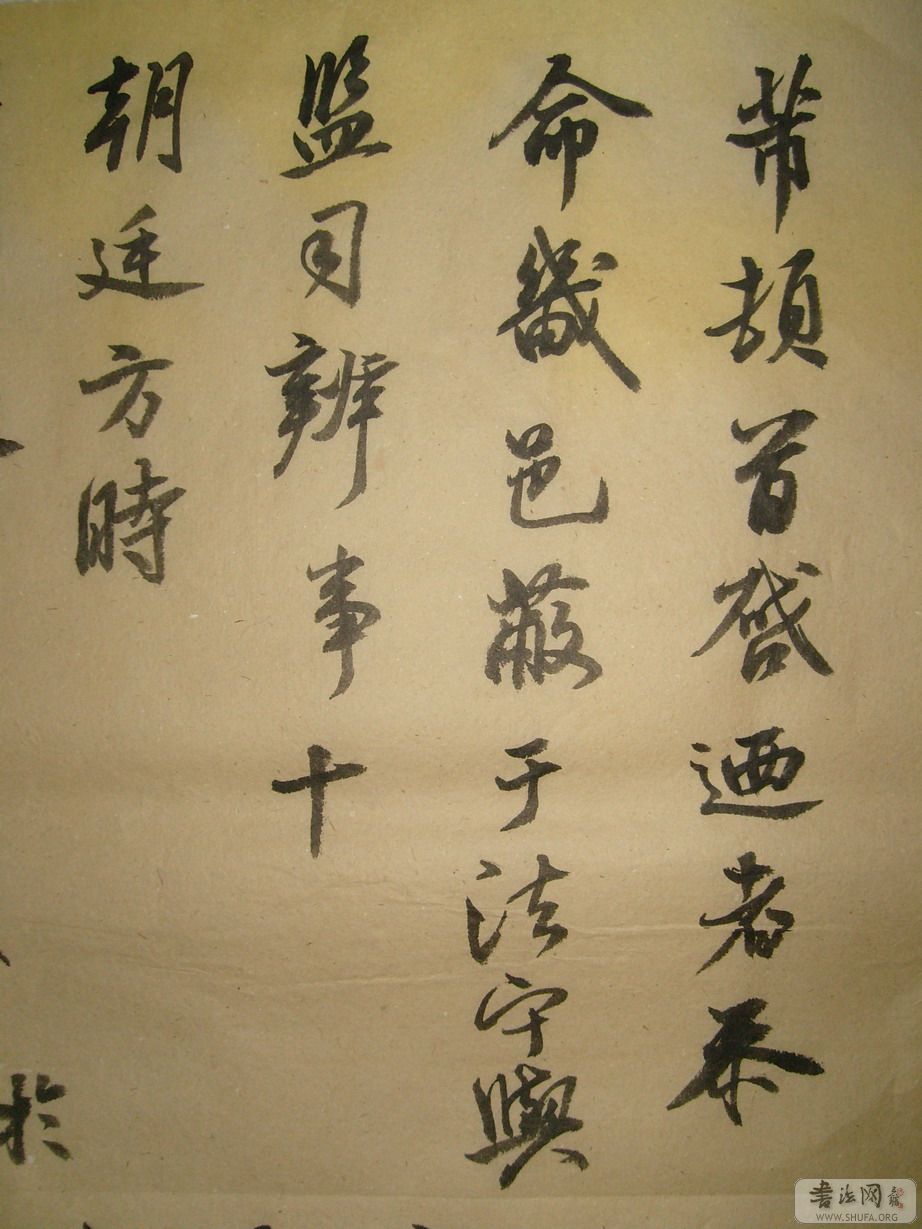 芾頓首啓迺者忝
命畿邑蔽于法守與
監司辨事十
朝廷方時
於
書法网
WWW.SHUFA.ORG